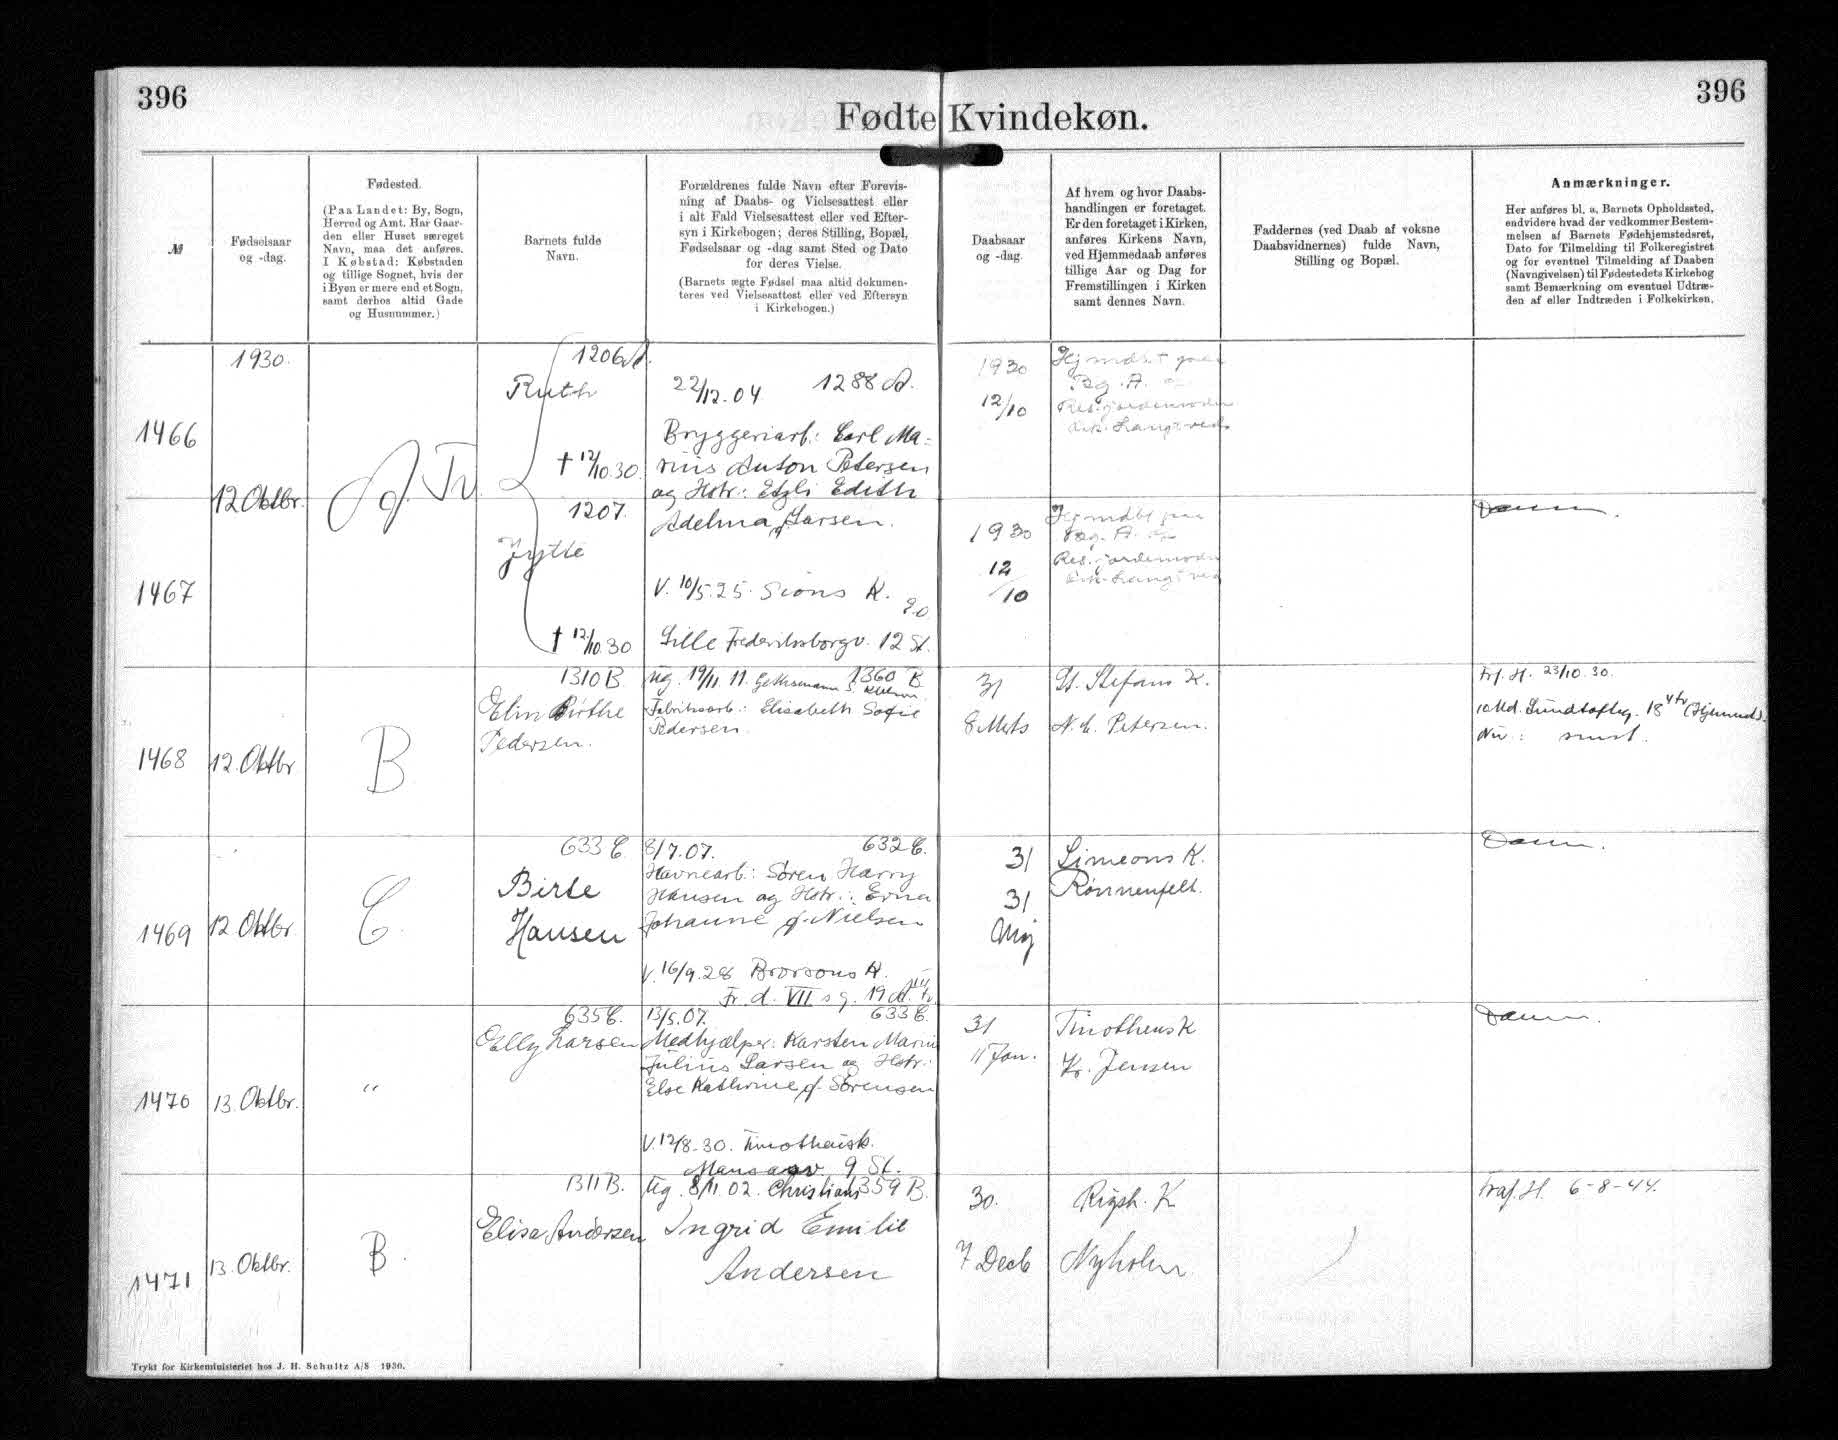 396
396
Fødte Kvindekøn.
№
Fødselsaar
og -dag.
Fødested.
(Paa Landet: By, Sogn,
Herred og Amt. Har Gaar-
den eller Huset særeget
Navn, maa det anføres.
I Købstad: Købstaden
og tillige Sognet, hvis der
i Byen er mere end et Sogn,
samt derhos altid Gade
og Husnummer.)
Barnets fulde
Navn.
Forældrenes fulde Navn efter Forevis-
ning af Daabs- og Vielsesattest eller
i alt Fald Vielsesattest eller ved Efter-
syn i Kirkebogen; deres Stilling, Bopæl,
Fødselsaar og -dag samt Sted og Dato
for deres Vielse.
(Barnets ægte Fødsel maa altid dokumen-
teres ved Vielsesattest eller ved Eftersyn
i Kirkebogen.)
Daabsaar
og -dag.
Af hvem og hvor Daabs-
handlingen er foretaget.
Er den foretaget i Kirken,
anføres Kirkens Navn,
ved Hjemmedaab anføres
tillige Aar og Dag for
Fremstillingen i Kirken
samt dennes Navn.
Faddernes (ved Daab af voksne
Daabsvidnernes) fulde Navn,
Stilling og Bopæl.
Anmærkninger.
Her anføres bl. a. Barnets Opholdssted,
endvidere hvad der vedkommer Bestem-
melsen af Barnets Fødehjemstedsret,
Dato for Tilmelding til Folkeregistret
og for eventuel Tilmelding af Daaben
(Navngivelsen) til Fødestedets Kirkebog
samt Bemærkning om eventuel Udtræ-
den af eller Indtræden i Folkekirken.
1930.
1466
12 Oktbr.
1206 A.
Ruth
† 12/10.30
22/12.04 1288 A.
Bryggeriarb.: Carl Ma-
rius Anton Petersen
og Hstr.: Edith
Adelma f. Larsen.
1930
12/10
1467
1207.
Jytte
† 12/10.30
V. 10/5.25. Sions K.
Lille Frederiksborgv. 12 St.
1930
12/10
1468
12. Oktbr
B
1310 B
Elin Birthe
Pedersen.
Ug. 19/11 11. 1360 B
Fabriksarb.: Elisabeth Sofie
Pedersen.
31
8 Marts
St. Stefans K.
N. C. Petersen.
23/10. 30.
1469
12 Oktbr.
C.
633 C
Birte
Hansen
8/7.07. 632 C.
Havnearb.: Søren Harry
Hansen og Hstr.: Erna
Johanne f. Nielsen
V. 16/9.28 Brorsons K.
Fr. d. VII s g. 19
31
31
Maj
Simeons K.
Rønnenfelt.
1470
13. Oktbr.
"
635 C.
Elly Larsen
13/5.07. 633 C.
Medhjælper: Karsten Marius
Julius Larsen og Hstr.:
Else Kathrine f. Sørensen
V. 12/8-30. Timotheusk.
9 St.
31
11 Jan.
Timotheus K
Kr. Jensen
1471
13. Oktbr.
B.
1311 B.
Elise Andersen
Ug. 8/11 02. Christians 1359 B.
Ingrid Emilie
Andersen
30.
7 Decb
Rigsh. K
Nyholm
Fraf. H. 6-8-44.
Trykt for Kirkeministeriet hos J. H. Schultz A/S 1930.